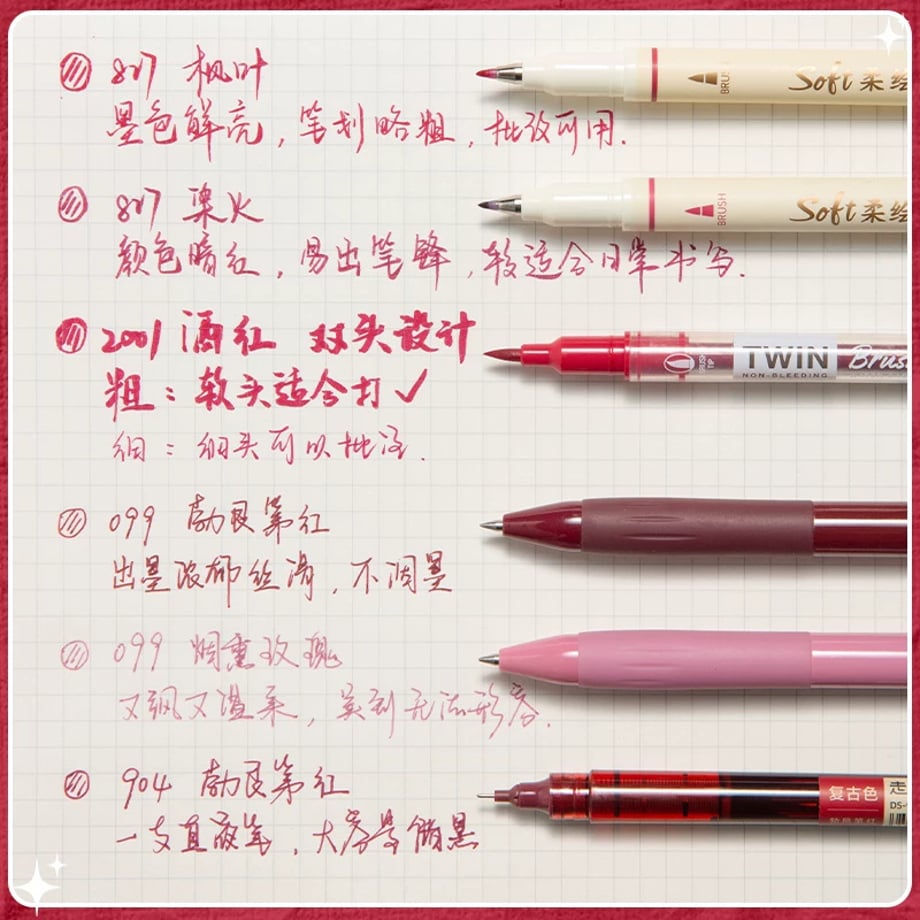 817 枫叶
墨色鲜亮，笔划略粗，批改可用.
BRUSH
Soft 柔绘
817 柒火
颜色暗红，易出笔锋，较适合日常书写.
BRUSH
Soft 柔绘
2001 酒红 双头设计
粗：软头适合打✓
细：细头可以批注.
BRUSH TIP
TWIN
NON-BLEEDING
Brus
099 勃艮第红
出墨浓郁丝滑，不洇墨
099 烟熏玫瑰
又飒又温柔，美到无法形容.
904 勃艮第红
一支直液笔，大容量储墨
复古色
勃艮第红
走
DS-